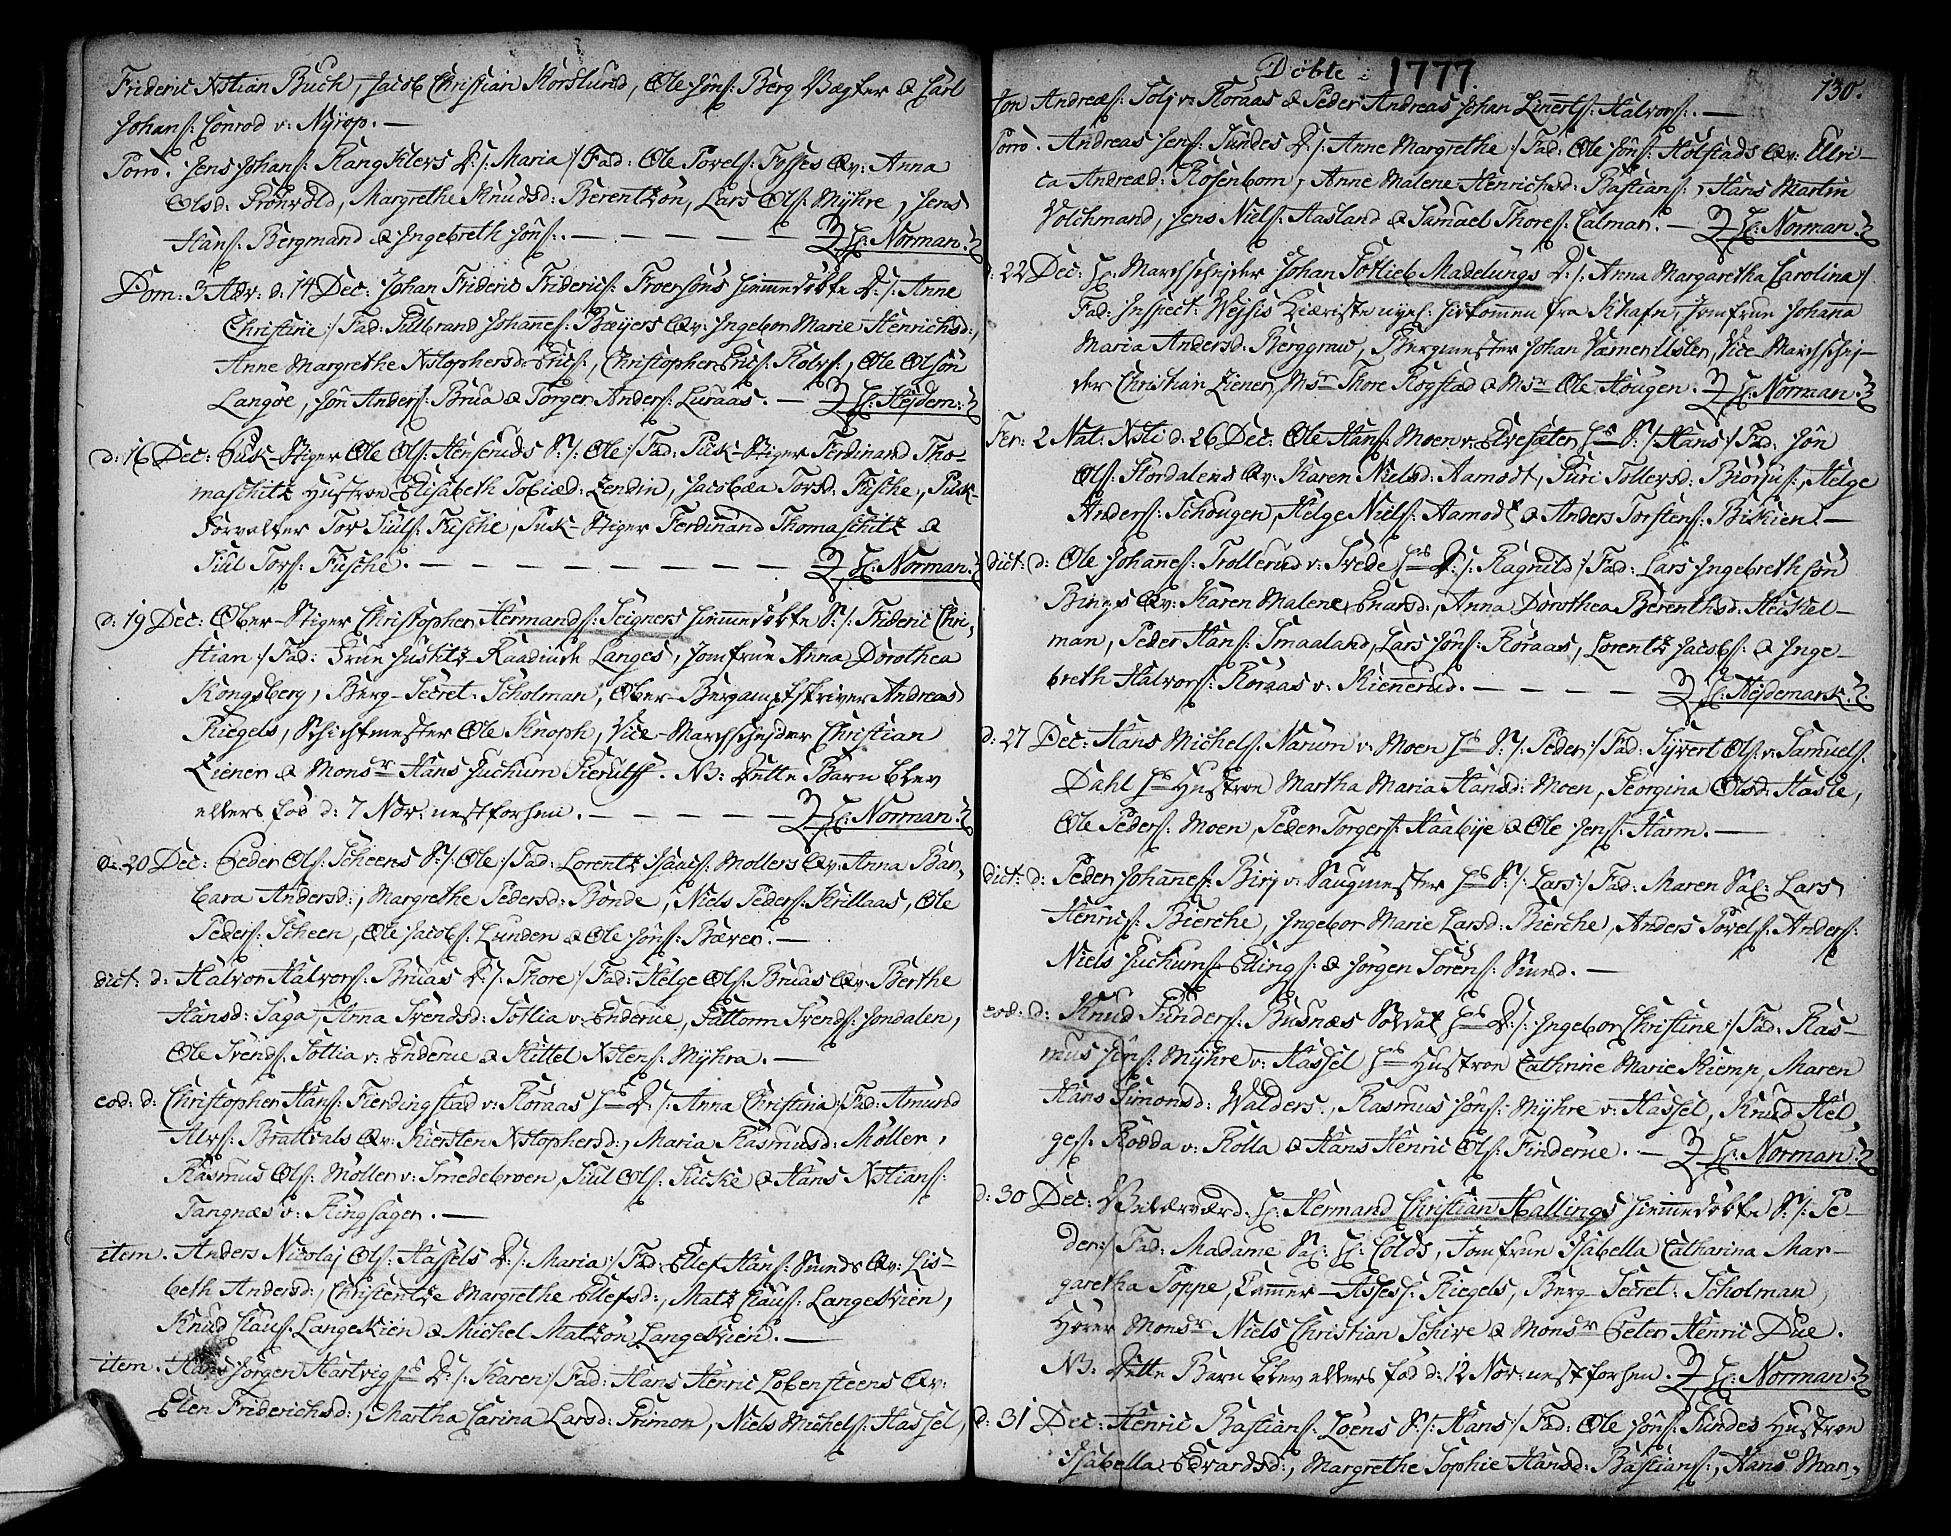 Frideric Xstian Buch, Jacob Christian Korslund, Ole Jöns: Berg Vægter & Carl
Johans: Conrod v: Nyrop. —
Porro: Jens Johans: Rangklevs D:/: Maria :/ Fad: Ole Povels: Tysses Qv: Anna
Olsd: Grönvold, Margrethe Knudsd: Berentzön, Lars Ols: Myhre, Jens
Hans: Bergmand & Ingebreth Jöns:. — — — — — H: Norman.
Dom: 3 Adv: d: 14 Dec: Johan Frideric Friderics: Froersöns hiemmedöbte D:/: Anne
Christine :/ Fad: Gulbrand Johannes: Bæyers Qv: Ingebor Marie Henrichsd:,
Anne Margrethe Xstophersd: Gus:, Christopher Gus: Rolvs:, Ole Olsön
Langöe, Jön Anders: Brua & Torger Anders: Luraas. — H: Hejdem:
d: 16 Dec: Puk-Stiger Ole Ols: Henseruds S:/: Ole :/ Fad: Puk-Stiger Ferdinand Tho-
maschitz Hustroe Elisabeth Tobiæd: Zendin, Jacobæa Torsd: Fische, Puk-
Forvalter Tor Juuls: Fische, Puk-Stiger Ferdinand Thomaschitz &
Juul Tors: Fische. — — — — — — — — H: Norman.
d: 19 Dec: Ober-Stiger Christopher Hermands: Seigners hiemmedöbte S:/: Frideric Chri-
stian :/ Fad: Frue Justitz-Raadinde Langes, Jomfrue Anna Dorothea
Kongsberg, Berg-Secret: Scholman, Ober-Bergamptskriver Andreas
Riegels, Schichtmester Ole Knoph, Vice-Marchschejder Christian
Ziener & Monsr Hans Juchum Kierulff. NB: Dette Barn blev
ellers föd d: 7 Nov: nestforhen. — — — — — H: Norman.
d: 20 Dec: Peder Ols: Scheens S:/: Ole :/ Fad: Lorentz Isaacs: Mollers Qv: Anna Bar-
bara Andersd:, Margrethe Pedersd: Bonde, Niels Peders: Krillaas, Ole
Peders: Scheen, Ole Jacobs: Lunden & Ole Jöns: Bæver. —
dict: d: Halvor Halvors: Bruas D:/: Thore :/ Fad: Helge Ols: Bruas Qv: Berthe
Hansd: Saga, Anna Svendsd: Sotlia v: Enderue, Guttorm Svends: Jondalen,
Ole Svends: Sotlia v: Enderue & Kittel Xstens: Myhra. —
eod: d: Christopher Hans: Fierdingstad v: Roraas Hs D:/: Anna Christina :/ Fad: Amund
Alvs: Brattvals Qv: Kiersten Xstophersd:, Maria Rasmusd: Moller,
Rasmus Ols: Moller v: Smedebroen, Juul Ols: Sucke & Hans Xstians:
Tangnæs v: Ringsager. —
item. Anders Nicolaj Ols: Hassels D:/: Maria :/ Fad: Ellef Hans: Sunds Qv: Lis-
beth Andersd:, Christentze Margrethe Ellefsd:, Matz Claus: Langekien,
Knud Claus: Langekien & Michel Matzön Langekien. —
item. Hans Jorgen Hartvig Hs D:/: Karen :/ Fad: Hans Henric Lobensteens Qv:
Elen Friderichsd:, Martha Carina Larsd: Primon, Niels Michels: Hassel,
Döbte i 1777. 130.
Jon Andreæs: Solj v: Roraas & Peder Andreas Johan Linerts: Halvors:. —
Porro. Andreas Jens: Sundes D:/: Anne Margrethe :/ Fad: Ole Jöns: Holstads Qv: Ellri-
ca Andread: Rosenbom, Anne Malene Henrichsd: Bastians:, Hans Martin
Volchmand, Jens Niels: Aasland & Samuel Thores: Calmar. — H: Norman.
d: 22 Dec: H: Marchschejder Johan Gotlieb Madelungs D:/: Anna Margaretha Carolina :/
Fad: Inspect: Wejsis Kiæriste nyel: hidkommen fra Khafn, Jomfrue Johana
Maria Andersd: Berggrav, Bergmester Johan Værner Usler, Vice Marchschej-
der Christian Ziener, Msr Thore Rogstad & Msr Ole Hougen. H: Norman.
Fer: 2 Nat: Xsti d: 26 Dec: Ole Hans: Moen v: Edvesater Hs S:/: Hans :/ Fad: Jön
Ols: Stordalens Qv: Karen Nielsd: Aamodt, Guri Tollevsd: Biörjus:, Helge
Anders: Schougen, Helge Niels: Aamodt & Anders Torstens: Biskien. —
dict: d: Ole Johannes: Trollerud v: Svede Hs D:/: Ragnild :/ Fad: Lars Ingebrethsön
Bings Qv: Karen Malene Enarsd:, Anna Dorothea Berenthsd: Heckel-
man, Peder Hans: Smaaland, Lars Jöns: Roraas, Lorentz Jacobs: & Inge-
breth Halvors: Roraas v: Kiennerud. — — — — H: Hejdemark.
d: 27 Dec: Hans Michels: Narum v: Moen Hs S:/: Peder :/ Fad: Syvert Ols: v: Samuels:
Dahl Hs Hustroe Martha Maria Hansd: Moen, Georgina Olsd: Hasle,
Ole Peders: Moen, Peder Torgers: Haabye & Ole Jens: Harm. —
dict: d: Peder Johannes: Birj v: Saugmester Hs S:/: Lars :/ Fad: Maren Sal: Lars
Henrics: Bierche, Ingebor Marie Larsd: Bierche, Anders Povels: Anders:
Niels Juchums: Ellings: & Jorgen Sorens: Sund. —
eod: d: Knud Gunders: Busnæs Soldat Hs D:/: Ingebor Christine :/ Fad: Ras-
mus Jöns: Myhre v: Hassel Hs Hustroe Cathrine Marie Kiemp, Maren
Hans Simonsd: Walders, Rasmus Jöns: Myhre v: Hassel, Knud Hel-
ges: Rodda v: Rolla & Hans Henric Ols: Finderue. — H: Norman.
d: 30 Dec: Velærværd: H: Hermand Christian Hallings hiemmedöbte S:/: Pe-
der :/ Fad: Madame Sal: H: Colds, Jomfrue Isabella Catharina Mar-
garetha Poppe, Cammer-Assess: Riegels, Berg-Secret: Scholman,
Hörer Monsr Niels Christian Schive & Monsr Peter Henric Due.
NB: Dette Barn blev ellers föd d: 12 Nov: nestforhen. H: Norman.
d: 31 Dec: Henric Bastians: Loens S:/: Hans :/ Fad: Ole Jöns: Sundes Hustroe
Isabella Edvardsd:, Margrethe Sophie Hansd: Bastians:, Hans Mar-